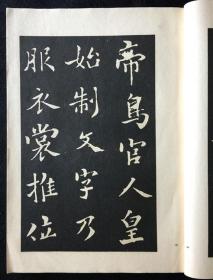 帝鳥官人皇
始制文字乃
服衣裳推位